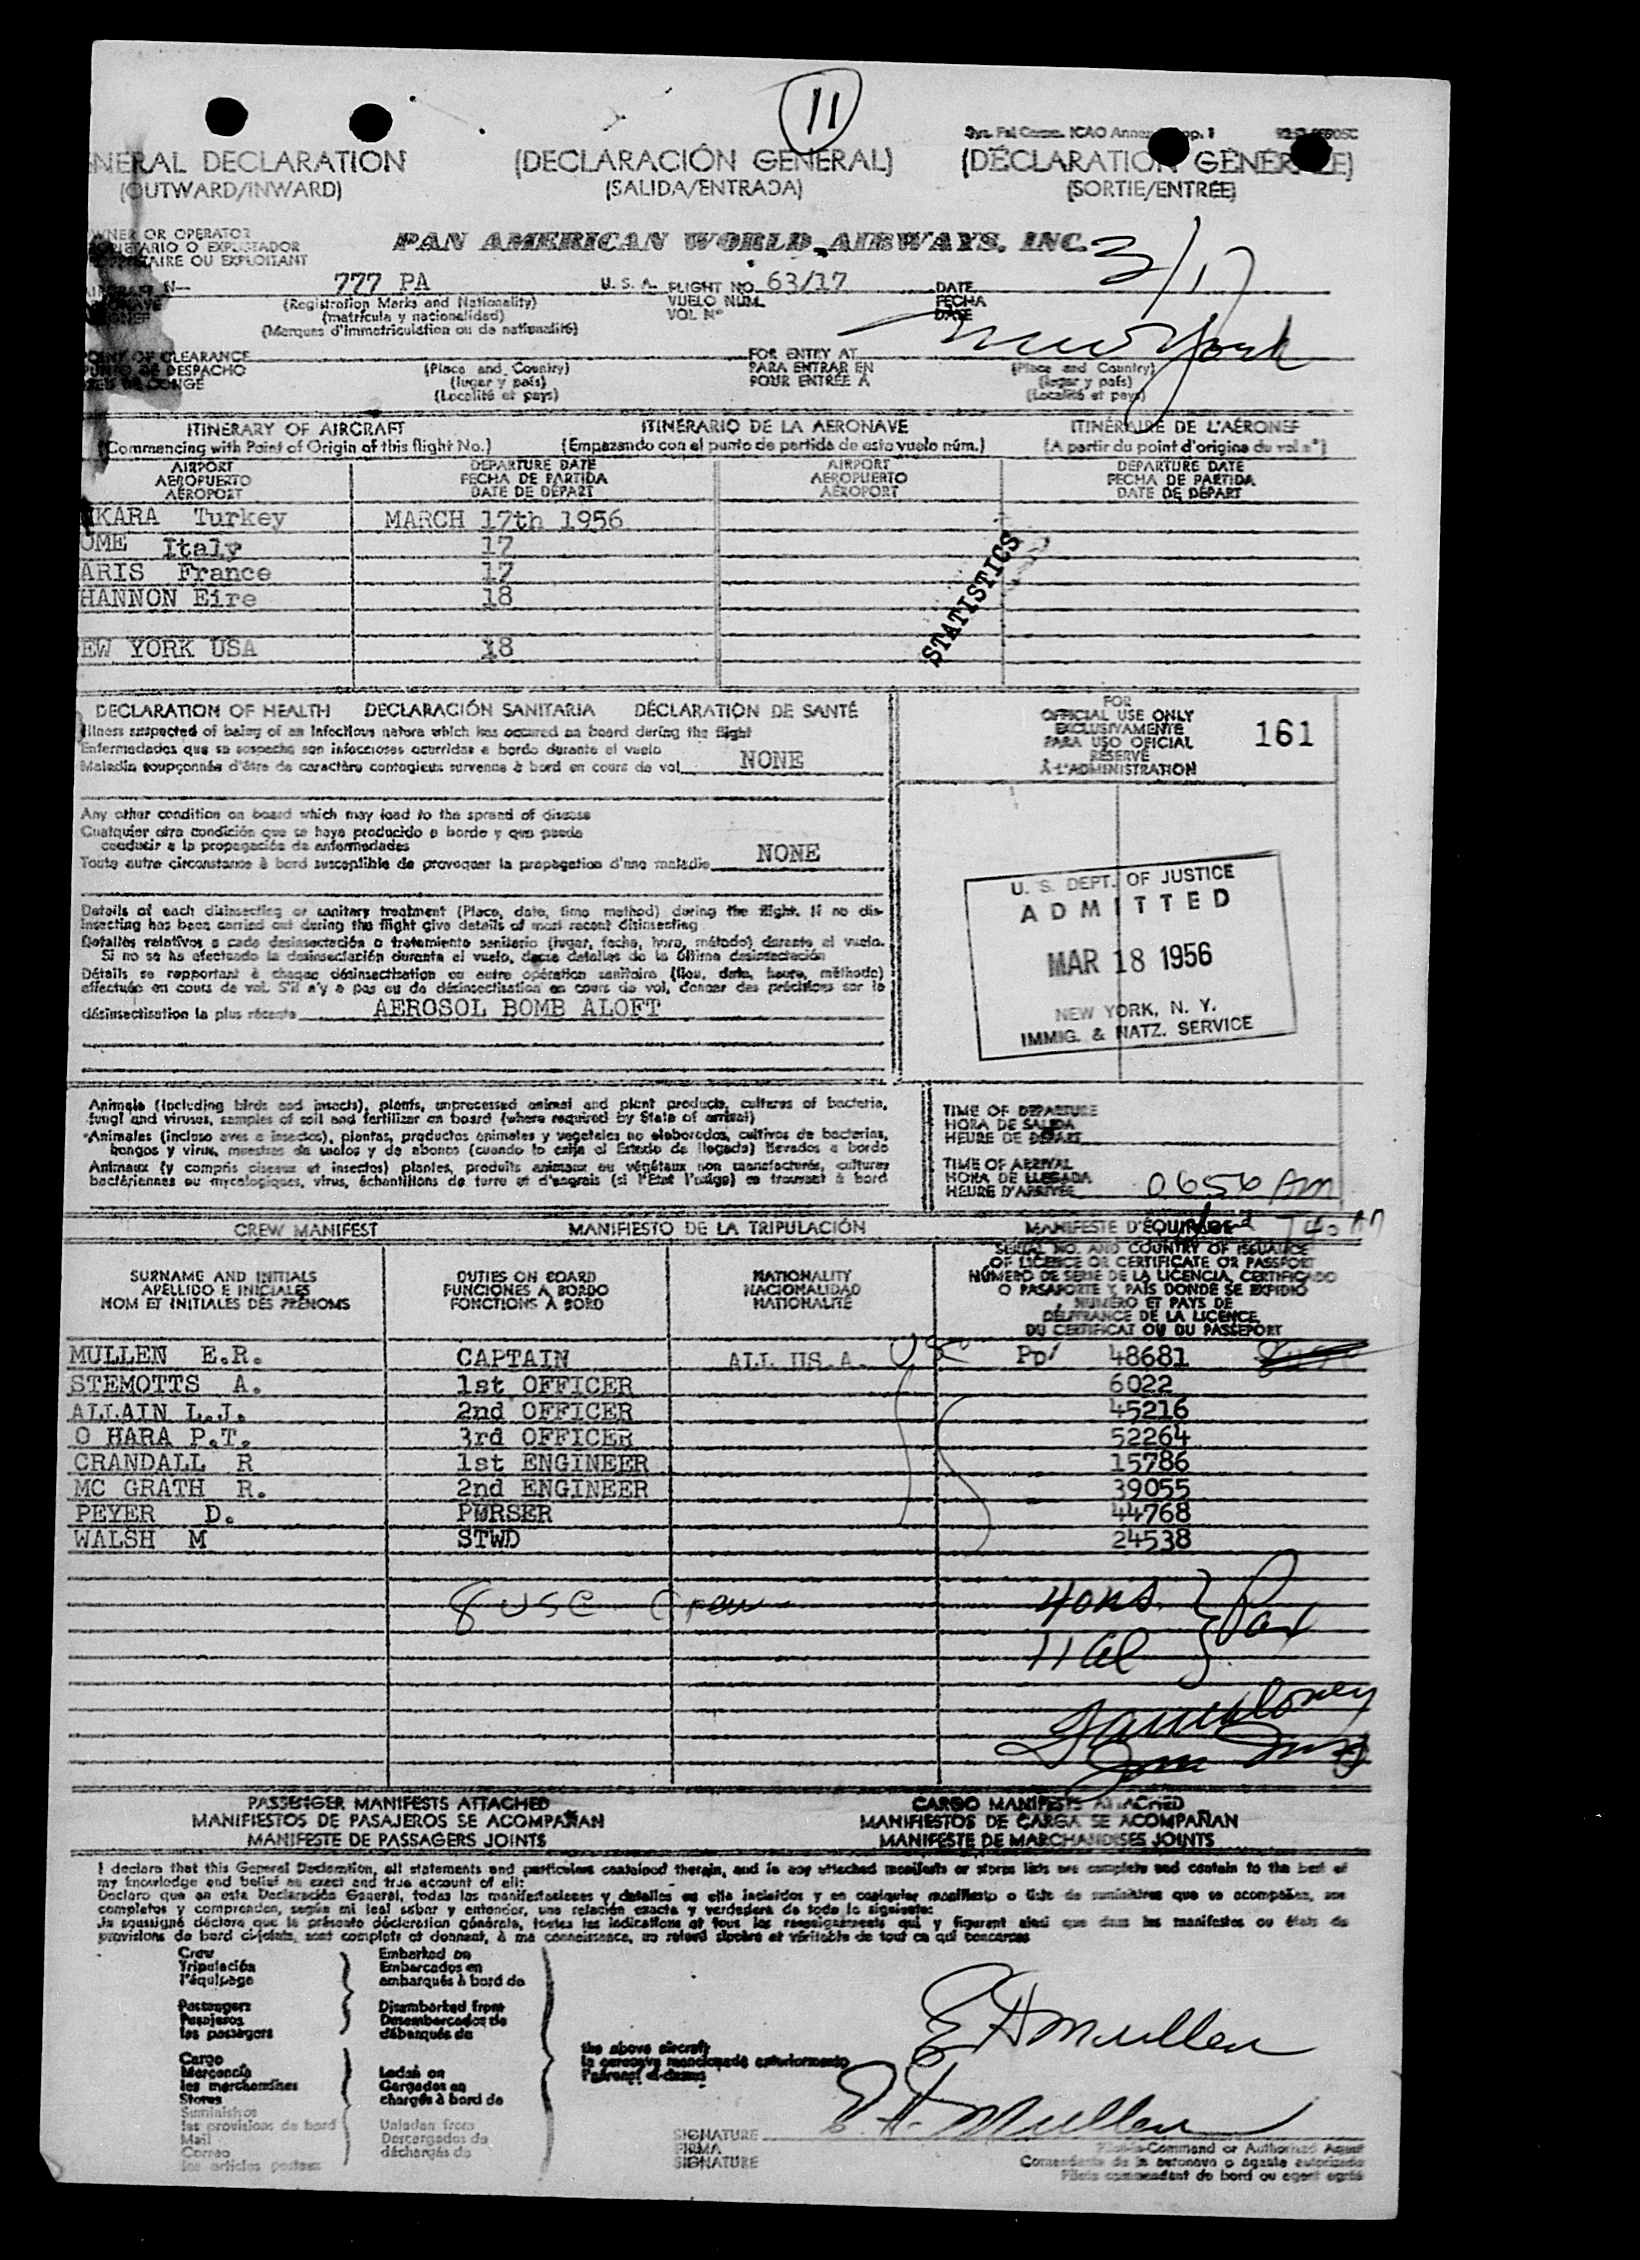 11
Annex
NERAL DECLARATION (DECLARACIÓN GENERAL) (DÉCLARATION GÉNÉRALE)
(OUTWARD/INWARD) (SALIDA/ENTRADA) (SORTIE/ENTRÉE)
WNER OR OPERATOR
PIETARIO O EXPLOTADOR
TAIRE OU EXPLOITANT
PAN AMERICAN WORLD AIRWAYS, INC.
N— 777 PA U. S. A. FLIGHT NO. 63/17 DATE 3/17
(Registration Marks and Nationality) VUELO NUM. FECHA
(matrícula y nacionalidad) VOL Nº DATE
(Marques d'immatriculation ou de nationalité)
POINT OF CLEARANCE FOR ENTRY AT New York
PUNTO DE DESPACHO (Place and Country) PARA ENTRAR EN (Place and Country)
DE CONGÉ (lugar y país) POUR ENTRÉE A (lugar y país)
(Localité et pays) (Localité et pays)
ITINERARY OF AIRCRAFT ITINERARIO DE LA AERONAVE ITINÉRAIRE DE L'AÉRONEF
(Commencing with Point of Origin of this flight No.) (Empezando con el punto de partida de este vuelo núm.) (A partir du point d'origine du vol nº)
AIRPORT DEPARTURE DATE AIRPORT DEPARTURE DATE
AEROPUERTO FECHA DE PARTIDA AEROPUERTO FECHA DE PARTIDA
AÉROPORT DATE DE DÉPART AÉROPORT DATE DE DÉPART
NKARA Turkey MARCH 17th 1956
OME Italy 17
ARIS France 17
HANNON Eire 18
EW YORK USA 18
STATISTICS
DECLARATION OF HEALTH DECLARACIÓN SANITARIA DÉCLARATION DE SANTÉ
Illness suspected of being of an infectious nature which has occured on board during the flight
Enfermedades que se sospecha son infecciosas ocurridas a bordo durante el vuelo
Maladie soupçonnée d'être de caractère contagieux survenue à bord en cours de vol NONE
FOR
OFFICIAL USE ONLY
EXCLUSIVAMENTE
PARA USO OFICIAL
RÉSERVÉ
À L'ADMINISTRATION
161
Any other condition on board which may lead to the spread of disease
Cualquier otra condición que se haya producido a bordo y que pueda
conducir a la propagación de enfermedades
Toute autre circonstance à bord susceptible de provoquer la propagation d'une maladie NONE
Details of each disinsecting or sanitary treatment (Place, date, time method) during the flight. If no dis-
insecting has been carried out during the flight give details of most recent disinsecting
Detalles relativos a cada desinsectación o tratamiento sanitario (lugar, fecha, hora, método) durante el vuelo.
Si no se ha efectuado la desinsectación durante el vuelo, dense detalles de la última desinsectación
Détails se rapportant à chaque désinsectisation ou autre opération sanitaire (lieu, date, heure, méthode)
effectuée en cours de vol. S'il n'y a pas eu de désinsectisation en cours de vol, donner des précisions sur la
désinsectisation la plus récente AEROSOL BOMB ALOFT
U. S. DEPT. OF JUSTICE
ADMITTED
MAR 18 1956
NEW YORK, N. Y.
IMMIG. & NATZ. SERVICE
Animals (including birds and insects), plants, unprocessed animal and plant products, cultures of bacteria,
fungi and viruses, samples of soil and fertilizer on board (where required by State of arrival)
Animales (incluso aves e insectos), plantas, productos animales y vegetales no elaborados, cultivos de bacterias,
hongos y virus, muestras de suelos y de abonos (cuando lo exija el Estado de llegada) llevados a bordo
Animaux (y compris oiseaux et insectes) plantes, produits animaux ou végétaux non manufacturés, cultures
bactériennes ou mycologiques, virus, échantillons de terre et d'engrais (si l'Etat l'exige) se trouvant à bord
TIME OF DEPARTURE
HORA DE SALIDA
HEURE DE DÉPART
TIME OF ARRIVAL
HORA DE LLEGADA
HEURE D'ARRIVÉE 0656 AM
CREW MANIFEST MANIFIESTO DE LA TRIPULACIÓN MANIFESTE D'ÉQUIPAGE
SURNAME AND INITIALS DUTIES ON BOARD NATIONALITY
APELLIDO E INICIALES FUNCIONES A BORDO NACIONALIDAD
NOM ET INITIALES DES PRÉNOMS FONCTIONS À BORD NATIONALITÉ
SERIAL NO. AND COUNTRY OF ISSUANCE
OF LICENCE OR CERTIFICATE OR PASSPORT
NÚMERO DE SERIE DE LA LICENCIA, CERTIFICADO
O PASAPORTE Y PAÍS DONDE SE EXPIDIÓ
NUMÉRO ET PAYS DE
DÉLIVRANCE DE LA LICENCE,
DU CERTIFICAT OU DU PASSEPORT
MULLEN E.R. CAPTAIN ALL US.A. USC Pp 48681
STEMOTTS A. 1st OFFICER 6022
ALLAIN L.J. 2nd OFFICER 45216
O HARA P.T. 3rd OFFICER 52264
CRANDALL R 1st ENGINEER 15786
MC GRATH R. 2nd ENGINEER 39055
PEYER D. PURSER 44768
WALSH M STWD 24538
8 USC Crew
PASSENGER MANIFESTS ATTACHED CARGO MANIFESTS ATTACHED
MANIFIESTOS DE PASAJEROS SE ACOMPAÑAN MANIFIESTOS DE CARGA SE ACOMPAÑAN
MANIFESTE DE PASSAGERS JOINTS MANIFESTE DE MARCHANDISES JOINTS
I declare that this General Declaration, all statements and particulars contained therein, and in any attached manifests or stores lists are complete and contain to the best of
my knowledge and belief an exact and true account of all:
Declaro que en esta Declaración General, todas las manifestaciones y detalles en ella incluidos y en cualquier manifiesto o lista de suministros que se acompañan, son
completos y comprenden, según mi leal saber y entender, una relación exacta y verdadera de todo lo siguiente:
Je soussigné déclare que la présente déclaration générale, toutes les indications et tous les renseignements qui y figurent ainsi que dans les manifestes ou états de
provisions de bord ci-joints, sont complets et donnent, à ma connaissance, un relevé sincère et véritable de tout ce qui concerne
Crew Embarked on
Tripulación Embarcados en
l'équipage embarqués à bord de
Passengers Disembarked from
Pasajeros Desembarcados de
les passagers débarqués de
the above aircraft
la aeronave mencionada anteriormente
l'aéronef ci-dessus
Cargo
Mercancía Laden on
les marchandises Cargados en
Stores chargés à bord de
Suministros
les provisions de bord Unladen from
Mail Descargados de
Correo déchargés de
les articles postaux
E H Mullen
SIGNATURE E. H. Mullen
FIRMA Pilot-in-Command or Authorized Agent
SIGNATURE Comandante de la aeronave o agente autorizado
Pilote commandant de bord ou agent agréé